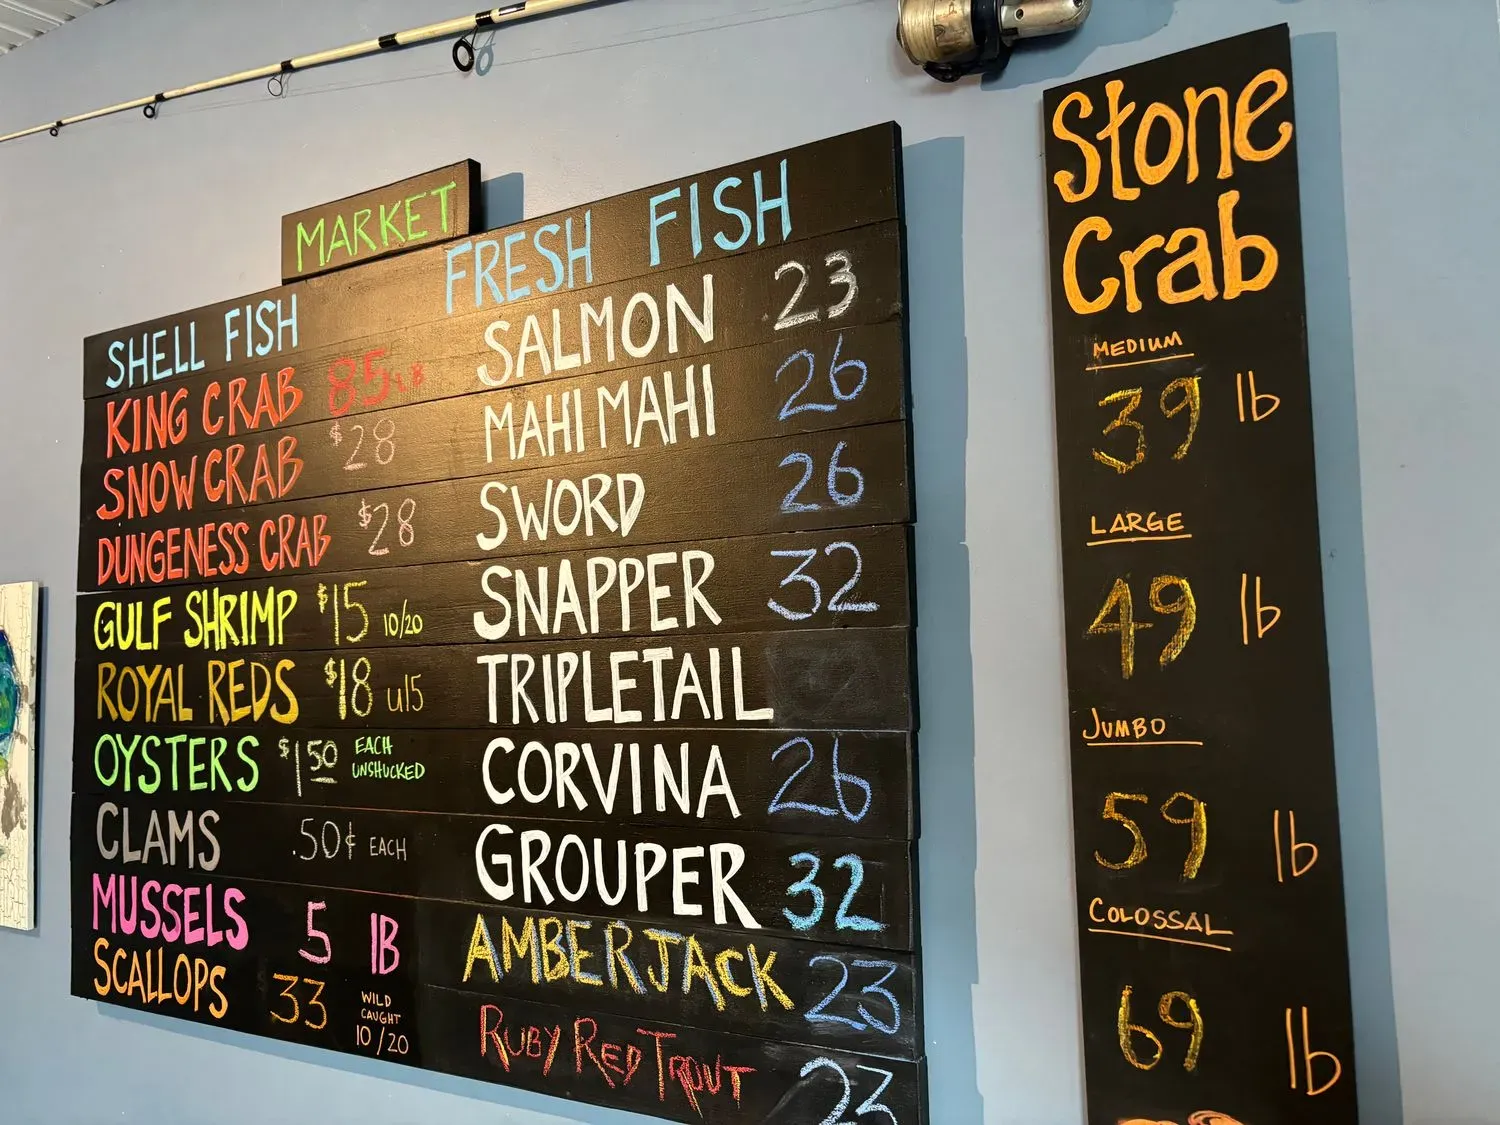 MARKET
SHELL FISH
KING CRAB 85 LB
SNOW CRAB $28
DUNGENESS CRAB $28
GULF SHRIMP $15 10/20
ROYAL REDS $18 u15
OYSTERS $1 50 EACH UNSHUCKED
CLAMS .50¢ EACH
MUSSELS 5 lB
SCALLOPS 33 WILD CAUGHT 10/20
FRESH FISH
SALMON 23
MAHI MAHI 26
SWORD 26
SNAPPER 32
TRIPLETAIL
CORVINA 26
GROUPER 32
AMBERJACK 23
RUBY RED TROUT 23
Stone
Crab
MEDIUM
39 lb
LARGE
49 lb
JUMBO
59 lb
COLOSSAL
69 lb